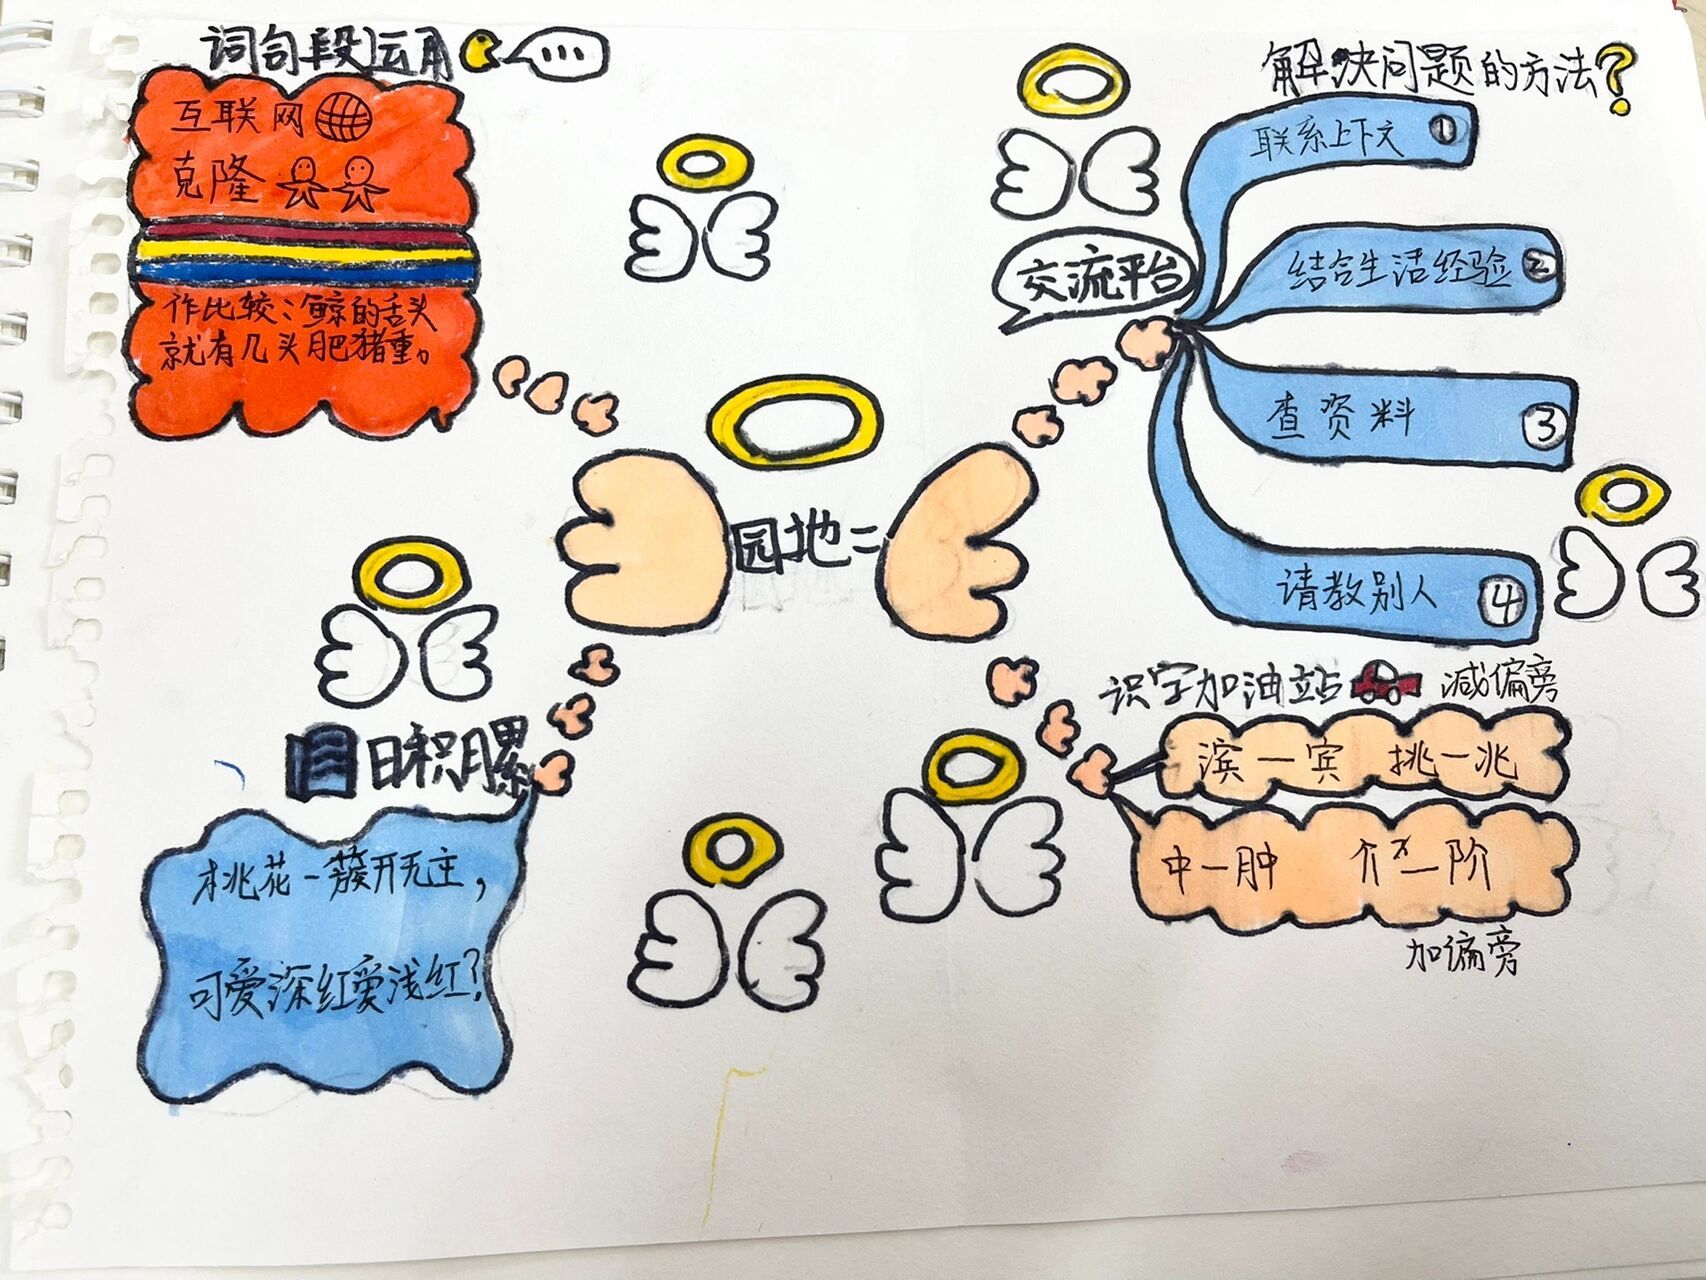 词句段运用
...
互联网
克隆
作比较：鲸的舌头
就有几头肥猪重。
解决问题的方法？
交流平台
联系上下文 1
结合生活经验 2
查资料 3
请教别人 4
园地二
识字加油站 减偏旁
滨一宾 挑一兆
中一肿 介一阶
加偏旁
日积月累
桃花一簇开无主，
可爱深红爱浅红？